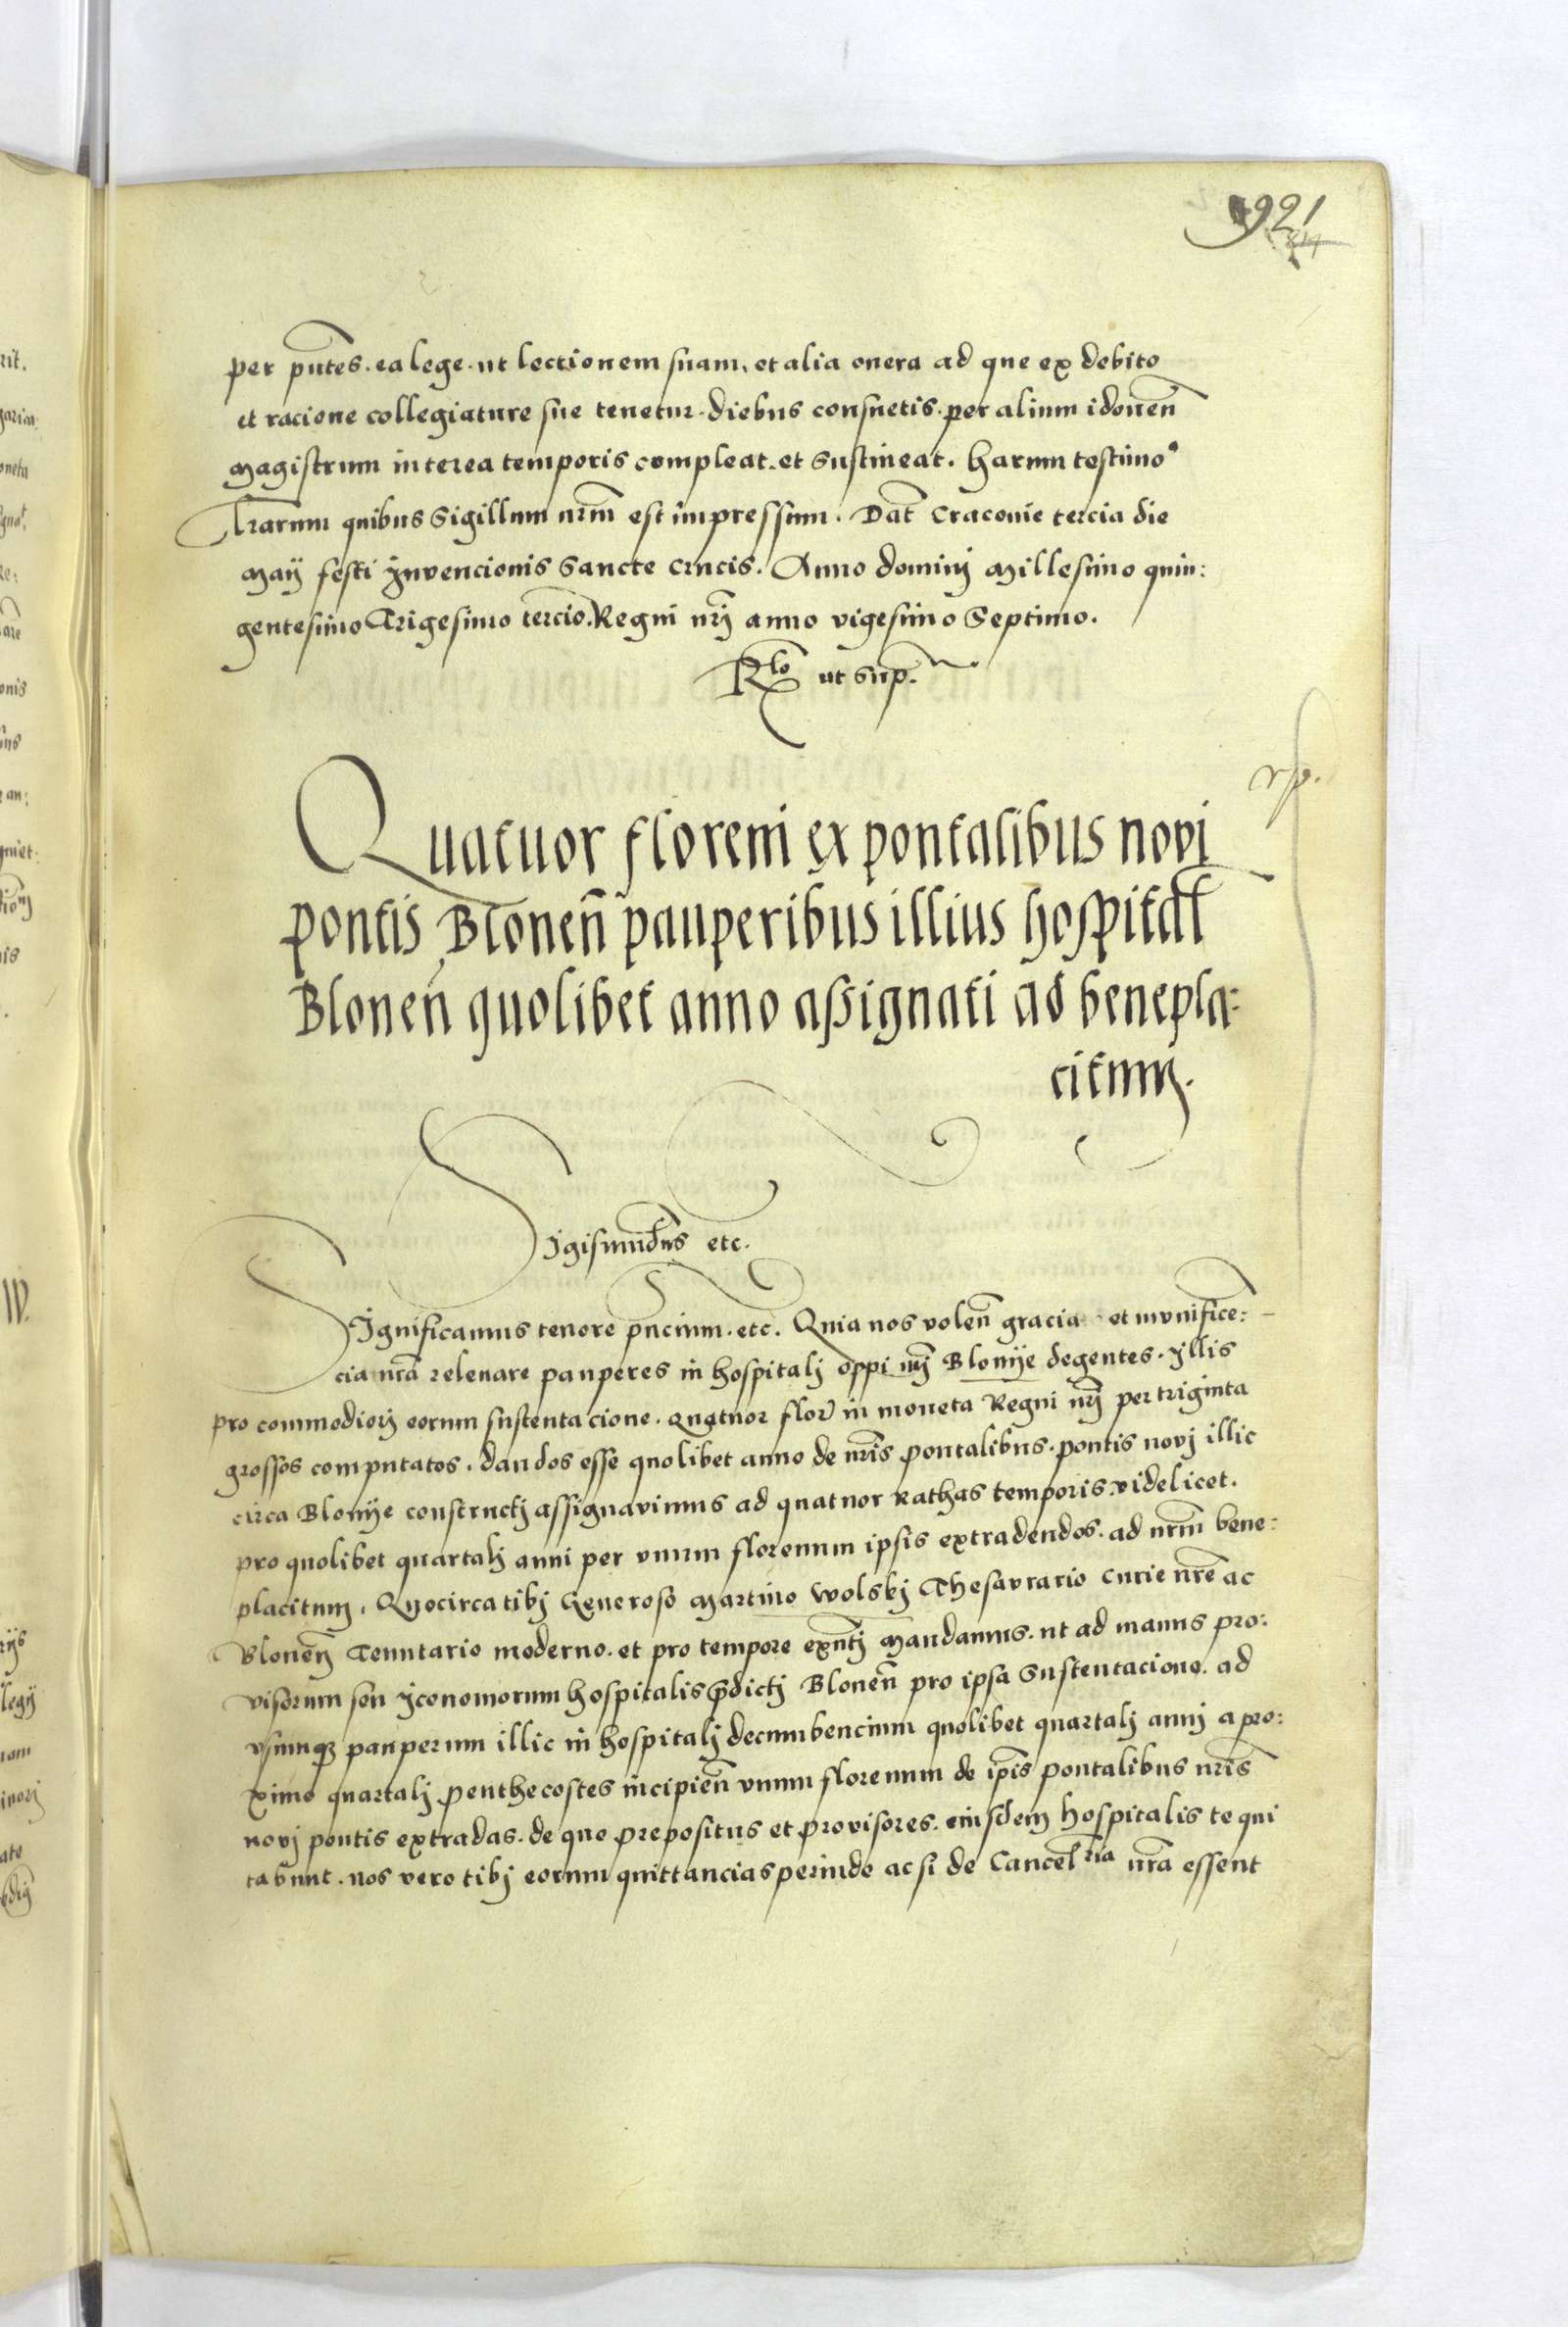 921
per pntes. ea lege. ut lectionem suam, et alia onera ad que ex debito
et racione collegiature sue tenetur. diebus consuetis. per alium idoneu
Magistrum interea temporis compleat. et sustineat. harum testimo
lrarum quibus Sigillum nrm est impressum. Dat Cracovie tercia die
Maij festi ynvencionis Sancte crucis. Anno dominj Millesimo quin:
gentesimo Trigesimo tercio. Regni nrj anno vigesimo Septimo.
Rlo ut sup.
Quatuor floreni ex pontalibus novi
pontis Blonen pauperibus illius hospital
Blonen quolibet anno assignati ad benepla:
citum.
Sigismundus etc.
Significamus tenore pncium. etc. Quia nos volen gracia et munifice:
cia nra relevare pauperes in hospitalj oppi nrj Blonije degentes. yllis
pro commediorj eorum sustentacione. quatuor flor in moneta Regni nrj per triginta
grossos computatos. dandos esse quolibet anno de nris pontalibus. pontis novj illic
circa Blonije constructj assignavimus ad quatuor Rathas temporis. videlicet.
pro quolibet quartalj anni per unum florenum ipsis extradendos. ad nrm bene:
placitum. Quocirca tibj Generoso Martino Wolskj Thesaurario Curie nre ac
Blonen Tenutario moderno. et pro tempore exntj Mandamus. ut ad manus pro:
visorum seu yconomorum hospitalis pdictj Blonen pro ipsa sustentacione. ad
usumq pauperum illic in hospitalj decumbencium quolibet quartalj annj a pro:
ximo quartalj penthecostes incipien unum florenum de ipis pontalibus nris
novj pontis extradas. de quo prepositus et provisores. eiusdem hospitalis te qui
tabunt. nos vero tibj eorum quittancias perinde ac si de Cancelria nra essent